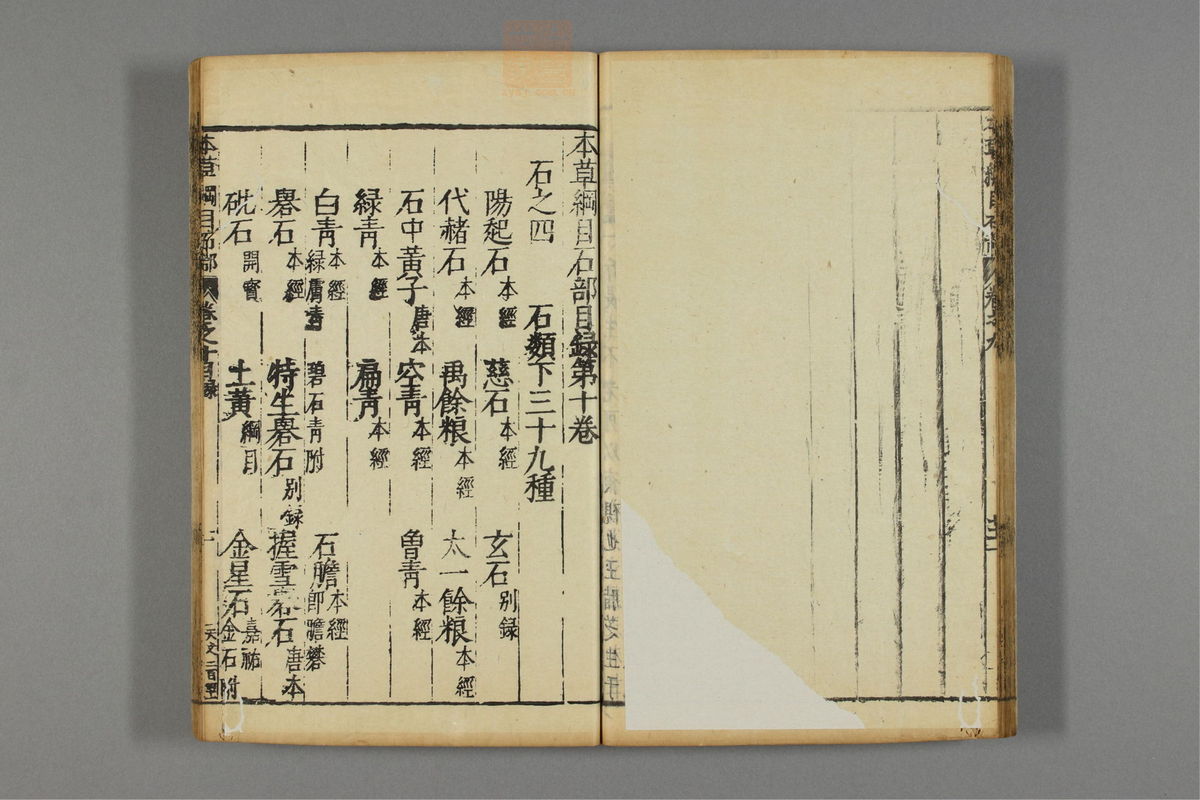 本草綱目石部目録第十卷
石之四　石類下三十九種
陽起石 本經　慈石 本經　玄石 别録
代赭石 本經　禹餘粮 本經　太一餘粮 本經
石中黃子 唐本　空青 本經　曾青 本經
緑青 本經　扁青 本經
白青 本經 緑膚青 碧石青附　石膽 本經 即膽礬
礜石 本經　特生礜石 别録　握雪礜石 唐本
砒石 開寳　土黃 綱目　金星石 嘉祐 金石附
本草綱目 石部 卷之十目録 一